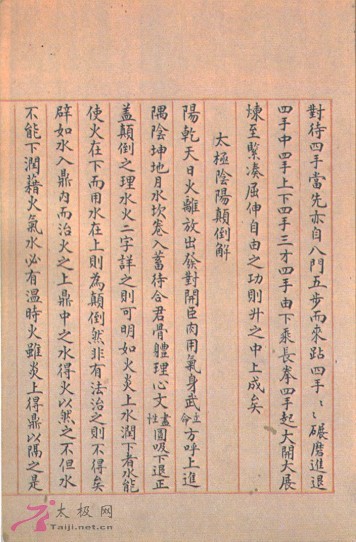 對待四手當先亦自八門五步而來跕四手〻〻碾磨進退
四手中四手上下四手三才四手由下乘長拳四手起大開大展
煉至緊凑屈伸自由之功則升之中上成矣
太極陰陽顛倒解
陽乾天日火離放出發對開臣肉用氣身武立命方呼上進
隅陰坤地月水坎卷入蓄待合君骨體理心文盡性圓吸下退正
蓋顛倒之理水火二字詳之則可明如火炎上水潤下者水能
使火在下而用水在上則為顛倒然非有法治之則不得矣
辟如水入鼎內而治火之上鼎中之水得火以然之不但水
不能下潤藉火氣水必有溫時火雖炎上得鼎以隔之是
太极网
Taiji.net.cn